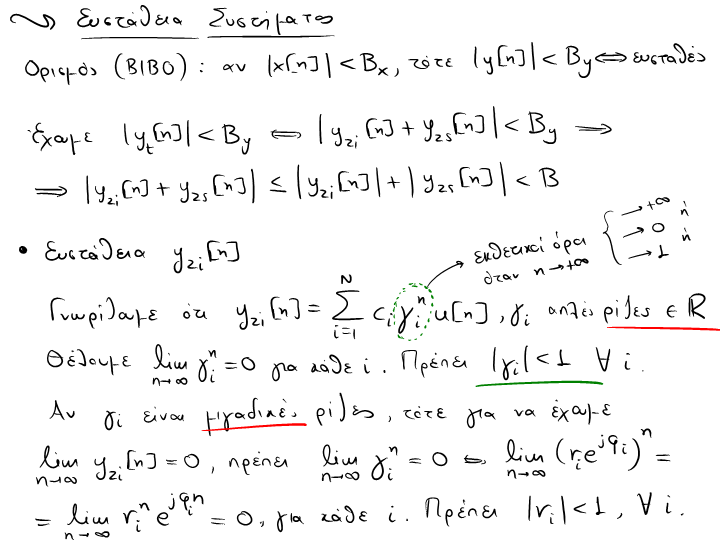 Ευστάθεια Συστήματος
Ορισμός (BIBO): αν |x[n]| < Bx, τότε |y[n]| < By ⇔ ευσταθές
Έχουμε |yt[n]| < By ⇐ |yzi[n] + yzs[n]| < By ⇒
⇒ |yzi[n] + yzs[n]| ≤ |yzi[n]| + |yzs[n]| < B
εκθετικοί όροι όταν n→+∞ { → +∞ ή → 0 ή → 1
• Ευστάθεια yzi[n]
Γνωρίζουμε ότι yzi[n] = Σ_{i=1}^{N} ci γi^n u[n], γi απλές ρίζες ∈ ℝ
Θέλουμε lim_{n→∞} γi^n = 0 για κάθε i. Πρέπει |γi| < 1 ∀ i.
Αν γi είναι μιγαδικές ρίζες, τότε για να έχουμε
lim_{n→∞} yzi[n] = 0, πρέπει lim_{n→∞} γi^n = 0 ⇔ lim_{n→∞} (ri e^{jφi})^n =
= lim_{n→∞} ri^n e^{jφi n} = 0, για κάθε i. Πρέπει |ri| < 1, ∀ i.